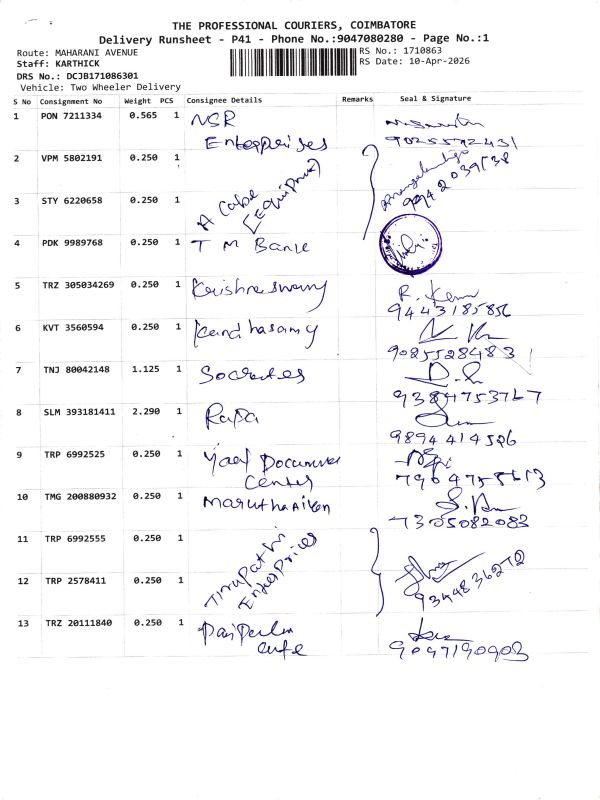 THE PROFESSIONAL COURIERS, COIMBATORE
Delivery Runsheet - P41 - Phone No.:9047080280 - Page No.:1
Route: MAHARANI AVENUE
RS No.: 1710863
Staff: KARTHICK
RS Date: 10-Apr-2026
DRS No.: DCJB171086301
Vehicle: Two Wheeler Delivery
S No Consignment No Weight PCS Consignee Details Remarks Seal & Signature
1 PON 7211334 0.565 1 NSR
Enterprises
9025592431
2 VPM 5802191 0.250 1
3 STY 6220658 0.250 1 A Cabe
4 PDK 9989768 0.250 1 T M Bank
5 TRZ 305034269 0.250 1 Krishnaswamy R.
9443185856
6 KVT 3560594 0.250 1 Kandhasamy
9085528483
7 TNJ 80042148 1.125 1 Socrates
9384753767
8 SLM 393181411 2.290 1 Rapa
9894414526
9 TRP 6992525 0.250 1
Center
10 TMG 200880932 0.250 1 Maruthaaiken
7305082083
11 TRP 6992555 0.250 1 Tirupathi
Enterprices
12 TRP 2578411 0.250 1 9344836272
13 TRZ 20111840 0.250 1
9097190903